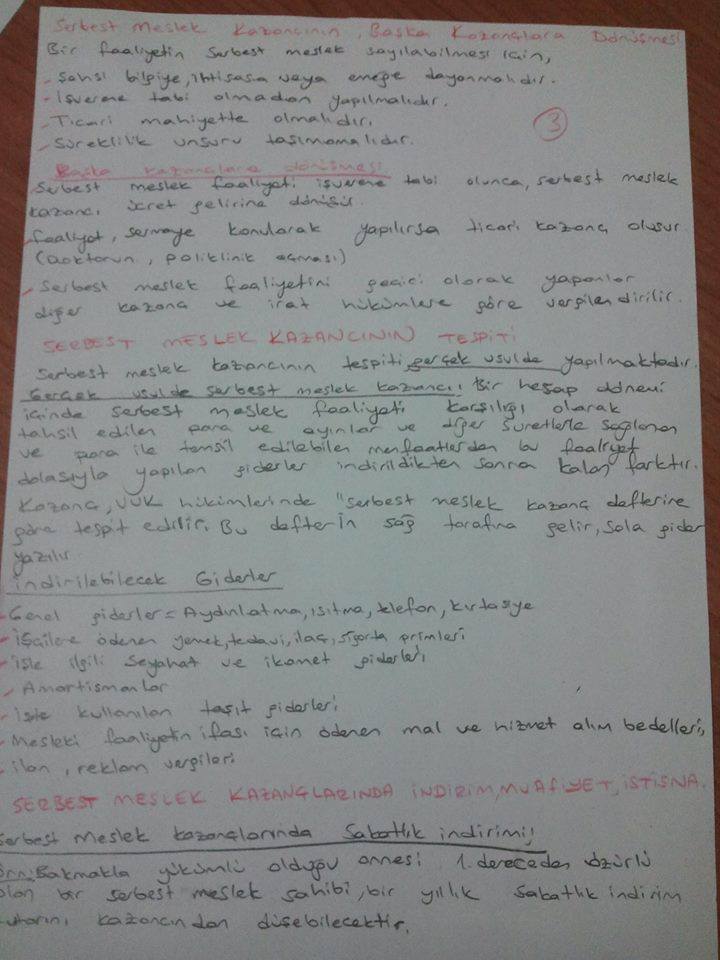 Serbest Meslek Kazancının, Başka Kazançlara Dönüşmesi
Bir faaliyetin serbest meslek sayılabilmesi için,
- Şahsi bilgiye, ihtisasa veya emeğe dayanmalıdır.
- İşverene tabi olmadan yapılmalıdır.
- Ticari mahiyette olmalıdır.
3
- Süreklilik unsuru taşımamalıdır.
Başka kazançlara dönüşmesi
Serbest meslek faaliyeti işverene tabi olunca, serbest meslek
kazancı ücret gelirine dönüşür.
- Faaliyet, sermaye konularak yapılırsa ticari kazanç oluşur.
(Doktorun, poliklinik açması)
- Serbest meslek faaliyetini geçici olarak yapanlar
diğer kazanç ve irat hükümlere göre vergilendirilir.
SERBEST MESLEK KAZANCININ TESPİTİ
Serbest meslek kazancının tespiti gerçek usulde yapılmaktadır.
Gerçek usulde serbest meslek kazancı; Bir hesap dönemi
içinde serbest meslek faaliyeti karşılığı olarak
tahsil edilen para ve ayınlar ve diğer suretlerle sağlanan
ve para ile temsil edilebilen menfaatlerden bu faaliyet
dolasıyla yapılan giderler indirildikten sonra kalan farktır.
Kazanç, VUK hükümlerinde "serbest meslek kazanç defterine
göre tespit edilir. Bu defterin sağ tarafına gelir, sola gider
yazılır
İndirilebilecek Giderler
- Genel giderler = Aydınlatma, ısıtma, telefon, kırtasiye
- İşçilere ödenen yemek, tedavi, ilaç, sigorta primleri
- İşle ilgili seyahat ve ikamet giderleri
- Amortismanlar
- İşte kullanılan taşıt giderleri
- Mesleki faaliyetin ifası için ödenen mal ve hizmet alım bedelleri,
- ilan, reklam vergileri
SERBEST MESLEK KAZANÇLARINDA İNDİRİM, MUAFİYET, İSTİSNA.
Serbest Meslek kazançlarında Sakatlık indirimi;
Örn; Bakmakla yükümlü olduğu annesi 1. dereceden özürlü
olan bir serbest meslek sahibi, bir yıllık sakatlık indirim
tutarını kazancından düşebilecektir.